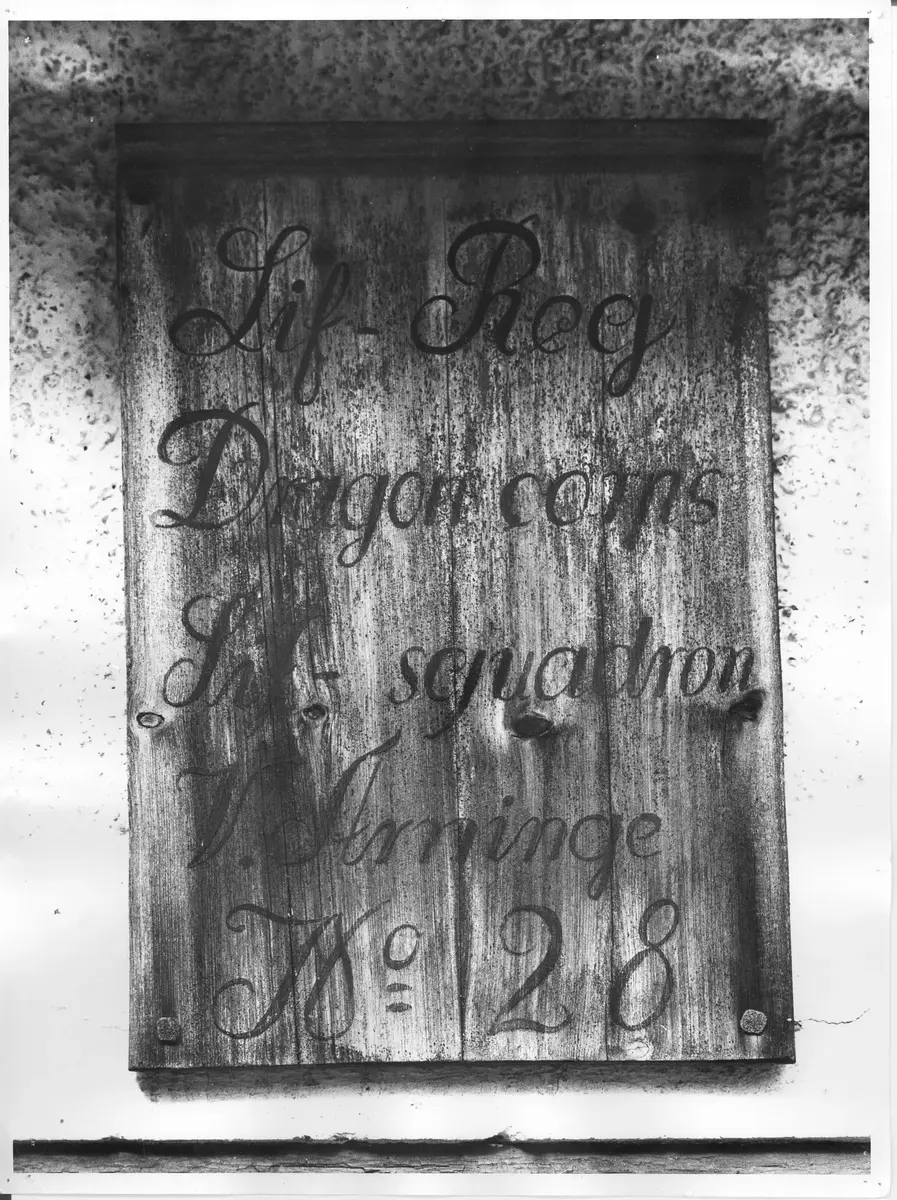 Lif - Reg
Dragon corps
Lif - squadron
V. Arninge
No 28